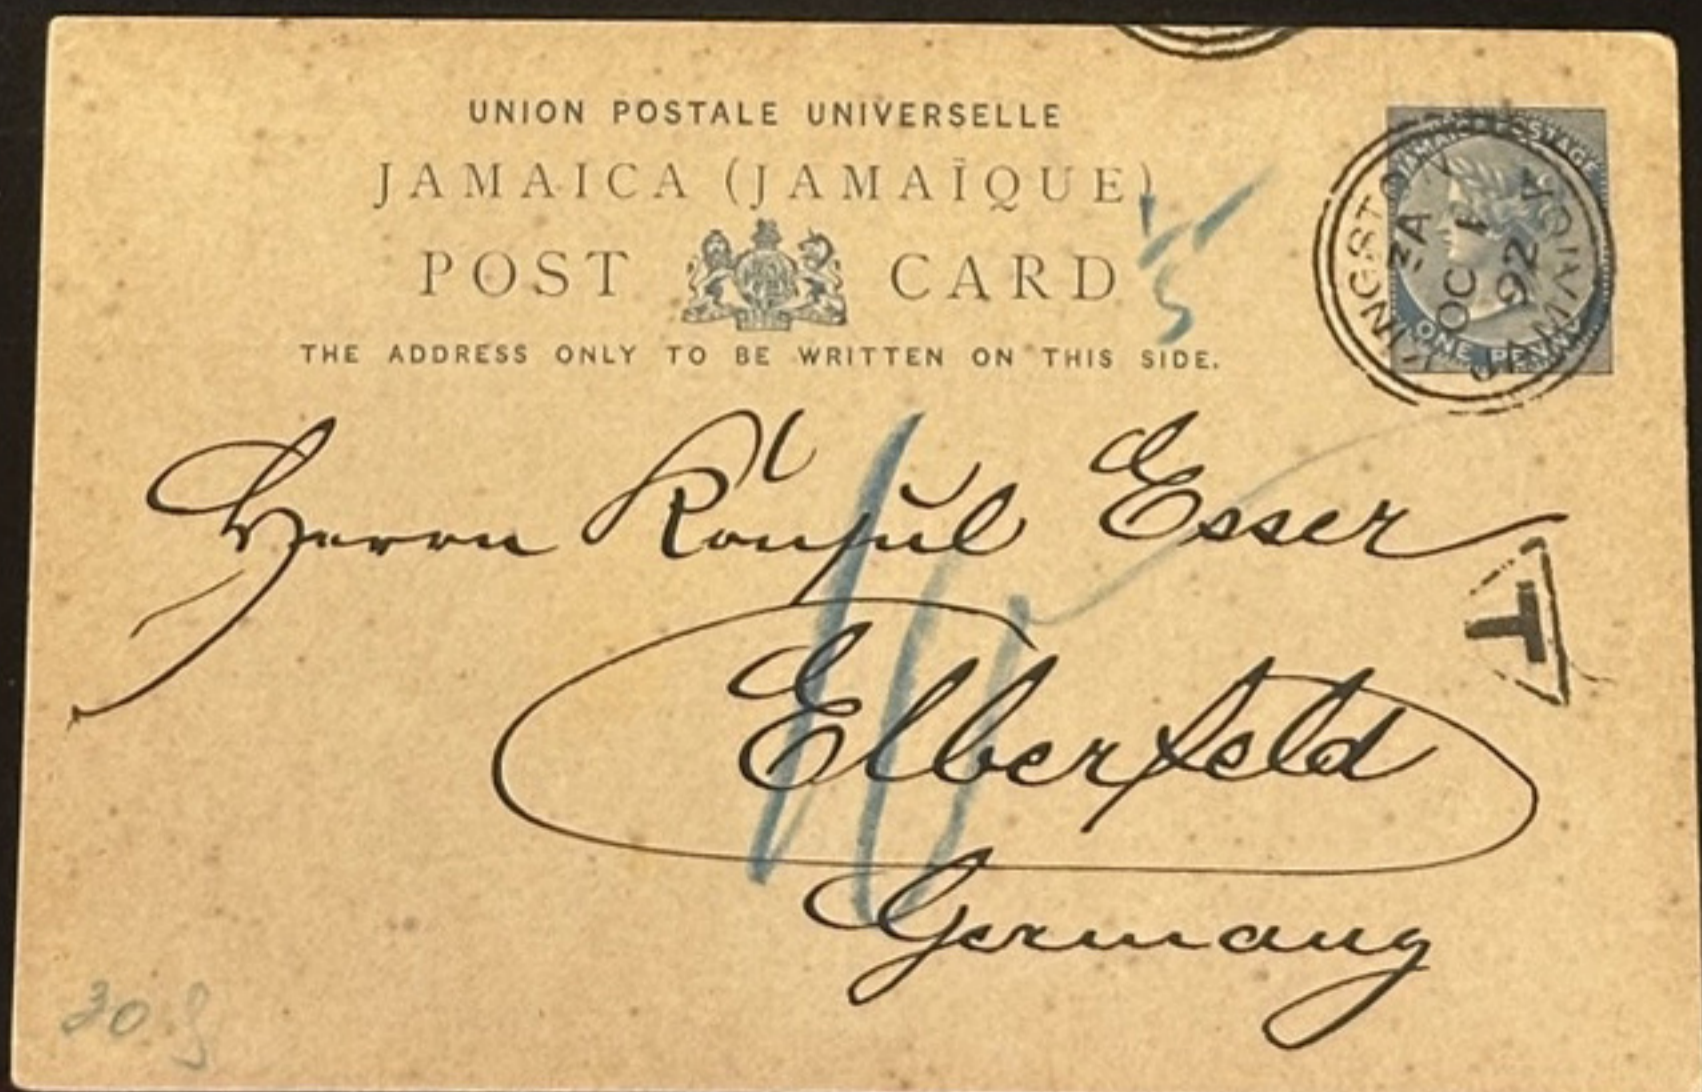 UNION POSTALE UNIVERSELLE
JAMAICA (JAMAÏQUE)
POST CARD
THE ADDRESS ONLY TO BE WRITTEN ON THIS SIDE.
JAMAICA POSTAGE
ONE PENNY
KINGSTON
OC 1
92
JAMAICA
Herrn Konsul Esser
T
Elberfeld
Germany
30